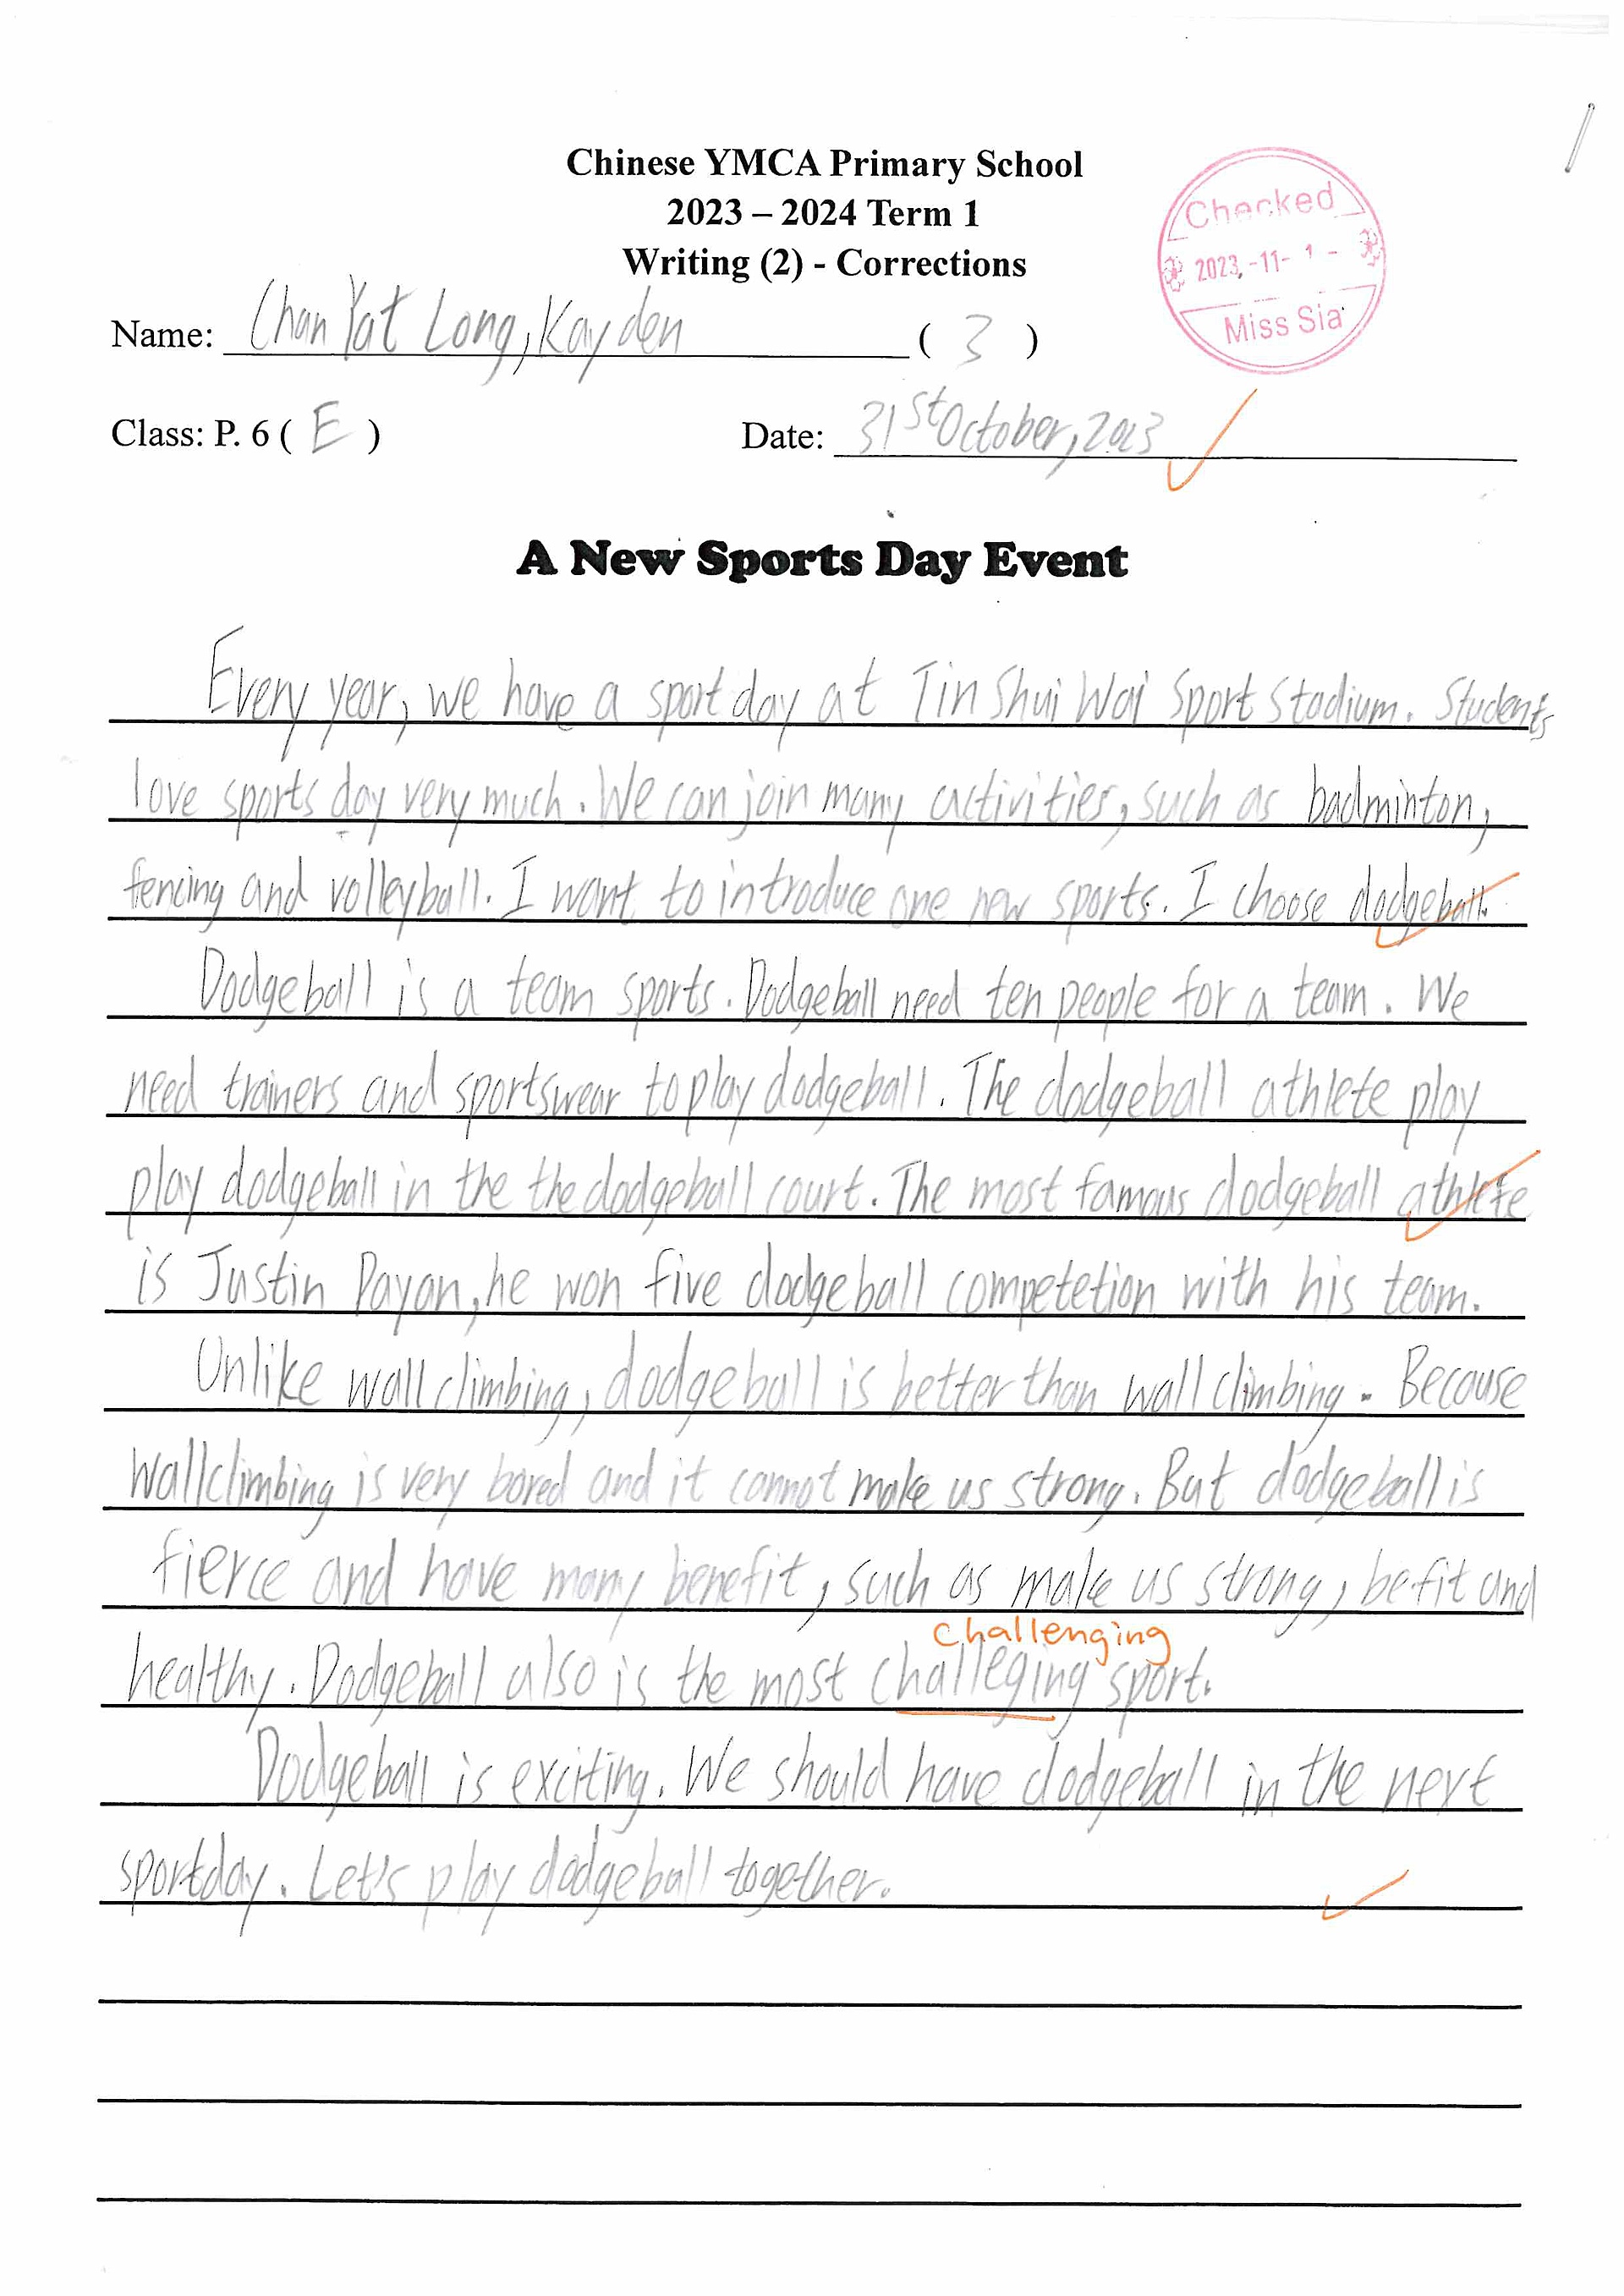 Chinese YMCA Primary School
2023 – 2024 Term 1
Writing (2) - Corrections
Checked
2023.-11- 1 -
Miss Sia
Name: Chan Yat Long, Kayden ( 3 )
Class: P. 6 ( E ) Date: 31st October, 2023
A New Sports Day Event
Every year, we have a sport day at Tin Shui Wai Sport Stadium. Students
love sports day very much. We can join many activities, such as badminton,
fencing and volleyball. I want to introduce one new sports. I choose dodgeball.
Dodgeball is a team sports. Dodgeball need ten people for a team. We
need trainers and sportswear to play dodgeball. The dodgeball athlete play
play dodgeball in the the dodgeball court. The most famous dodgeball athlete
is Justin Payan, he won five dodgeball competetion with his team.
Unlike wall climbing, dodgeball is better than wall climbing. Because
wallclimbing is very bored and it cannot make us strong. But dodgeball is
fierce and have many benefit, such as make us strong, be fit and
challenging
healthy. Dodgeball also is the most challeging sport.
Dodgeball is exciting. We should have dodgeball in the next
sportday. Let's play dodgeball together.